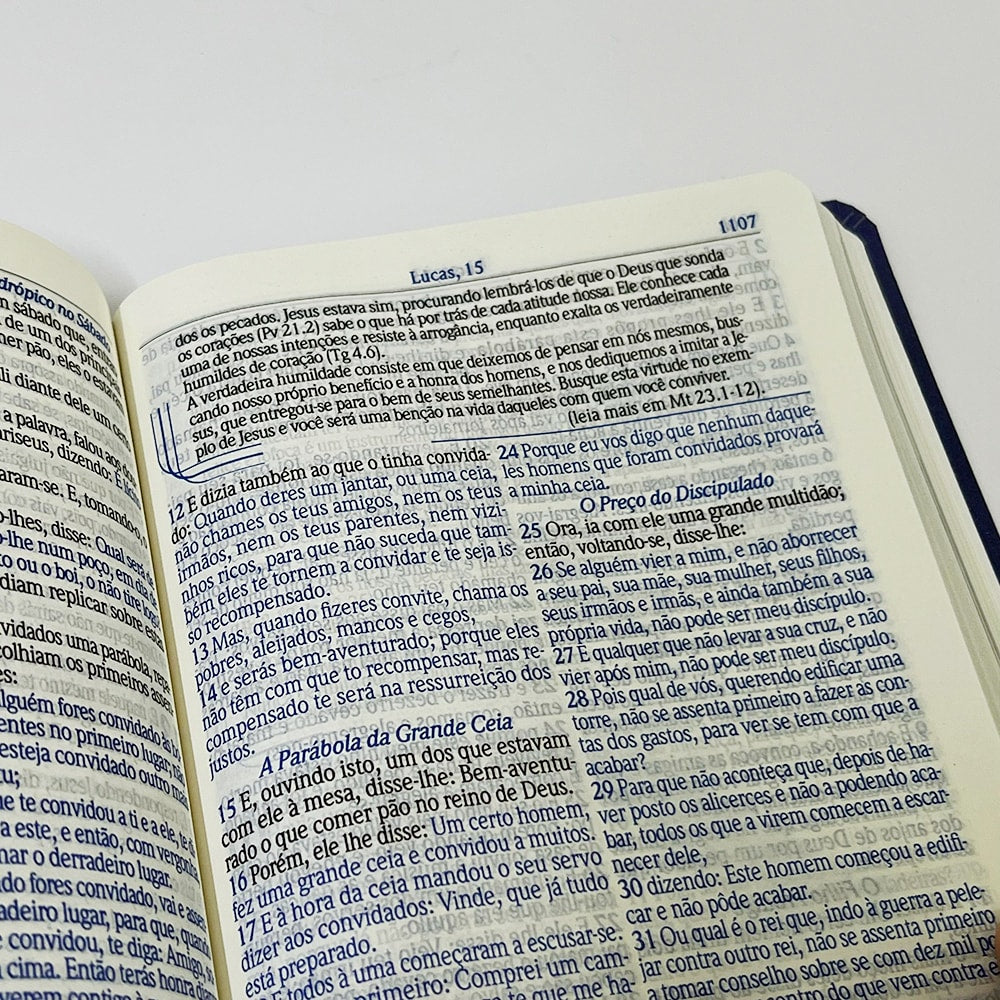 drópico no Sábado
sábado que, entra
de um dos princi
mer pão, eles o estavam
li diante dele um certo
a palavra, falou aos dou
ariseus, dizendo: É líci
aram-se. E, tomando-o,
o-lhes, disse: Qual será de
lo-lhe num poço, em dia de
to ou o boi, o não tire logo
diam replicar sobre estas
nvidados uma parábola, repa
colhiam os primeiros assen
es:
alguém fores convidado às bo
entes no primeiro lugar, não
esteja convidado outro mais
tu;
ue te convidou a ti e a ele, te di
a este, e então, com vergonha
mar o derradeiro lugar.
ndo fores convidado, vai e assen
adeiro lugar, para que, quando
e convidou, te diga: Amigo, s
cima. Então terás honra dian
Lucas, 15
1107
dos os pecados. Jesus estava sim, procurando lembrá-los de que o Deus que sonda
os corações (Pv 21.2) sabe o que há por trás de cada atitude nossa. Ele conhece cada
uma de nossas intenções e resiste à arrogância, enquanto exalta os verdadeiramente
humildes de coração (Tg 4.6).
A verdadeira humildade consiste em que deixemos de pensar em nós mesmos, bus-
cando nosso próprio benefício e a honra dos homens, e nos dediquemos a imitar a Je-
sus, que entregou-se para o bem de seus semelhantes. Busque esta virtude no exem-
plo de Jesus e você será uma benção na vida daqueles com quem você conviver.
(leia mais em Mt 23.1-12).
12 E dizia também ao que o tinha convida-
do: Quando deres um jantar, ou uma ceia,
não chames os teus amigos, nem os teus
irmãos, nem os teus parentes, nem vizi-
nhos ricos, para que não suceda que tam-
bém eles te tornem a convidar e te seja is-
so recompensado.
13 Mas, quando fizeres convite, chama os
pobres, aleijados, mancos e cegos,
14 e serás bem-aventurado; porque eles
não têm com que to recompensar, mas re-
compensado te será na ressurreição dos
justos.
A Parábola da Grande Ceia
15 E, ouvindo isto, um dos que estavam
com ele à mesa, disse-lhe: Bem-aventu-
rado o que comer pão no reino de Deus.
16 Porém, ele lhe disse: Um certo homem,
fez uma grande ceia e convidou a muitos.
17 E à hora da ceia mandou o seu servo
dizer aos convidados: Vinde, que já tudo
está preparado.
E todos à uma começaram a escusar-se.
primeiro: Comprei um cam-
24 Porque eu vos digo que nenhum daque-
les homens que foram convidados provará
a minha ceia.
O Preço do Discipulado
25 Ora, ia com ele uma grande multidão;
então, voltando-se, disse-lhe:
26 Se alguém vier a mim, e não aborrecer
a seu pai, sua mãe, sua mulher, seus filhos,
seus irmãos e irmãs, e ainda também a sua
própria vida, não pode ser meu discípulo.
27 E qualquer que não levar a sua cruz, e não
vier após mim, não pode ser meu discípulo.
28 Pois qual de vós, querendo edificar uma
torre, não se assenta primeiro a fazer as con-
tas dos gastos, para ver se tem com que a
acabar?
29 Para que não aconteça que, depois de ha-
ver posto os alicerces e não a podendo aca-
bar, todos os que a virem comecem a escar-
necer dele,
30 dizendo: Este homem começou a edifi-
car e não pôde acabar.
31 Ou qual é o rei que, indo à guerra a pele-
jar contra outro rei, não se assenta primeiro
a tomar conselho sobre se com dez mil po